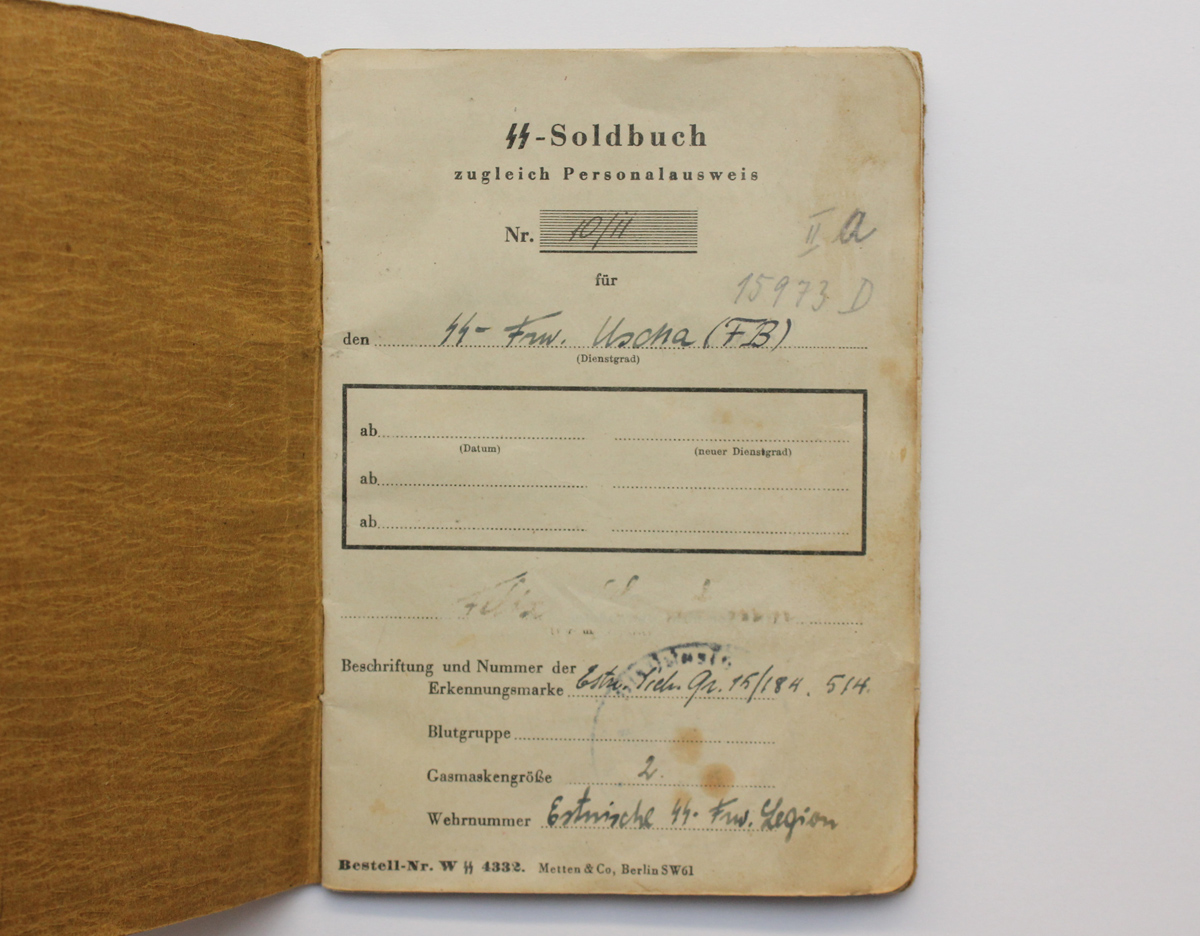 ϟϟ-Soldbuch
zugleich Personalausweis
Nr. 10/11
II a
für
15973 D
den ϟϟ- Frw. Uscha (FB)
(Dienstgrad)
ab
(Datum) (neuer Dienstgrad)
ab
ab
Felix
Beschriftung und Nummer der
Erkennungsmarke Estn. Sich. Gr. 15/184. 514.
Blutgruppe
Gasmaskengröße 2.
Wehrnummer Estnische ϟϟ- Frw. Legion
Bestell-Nr. W ϟϟ 4332. Metten & Co, Berlin SW61